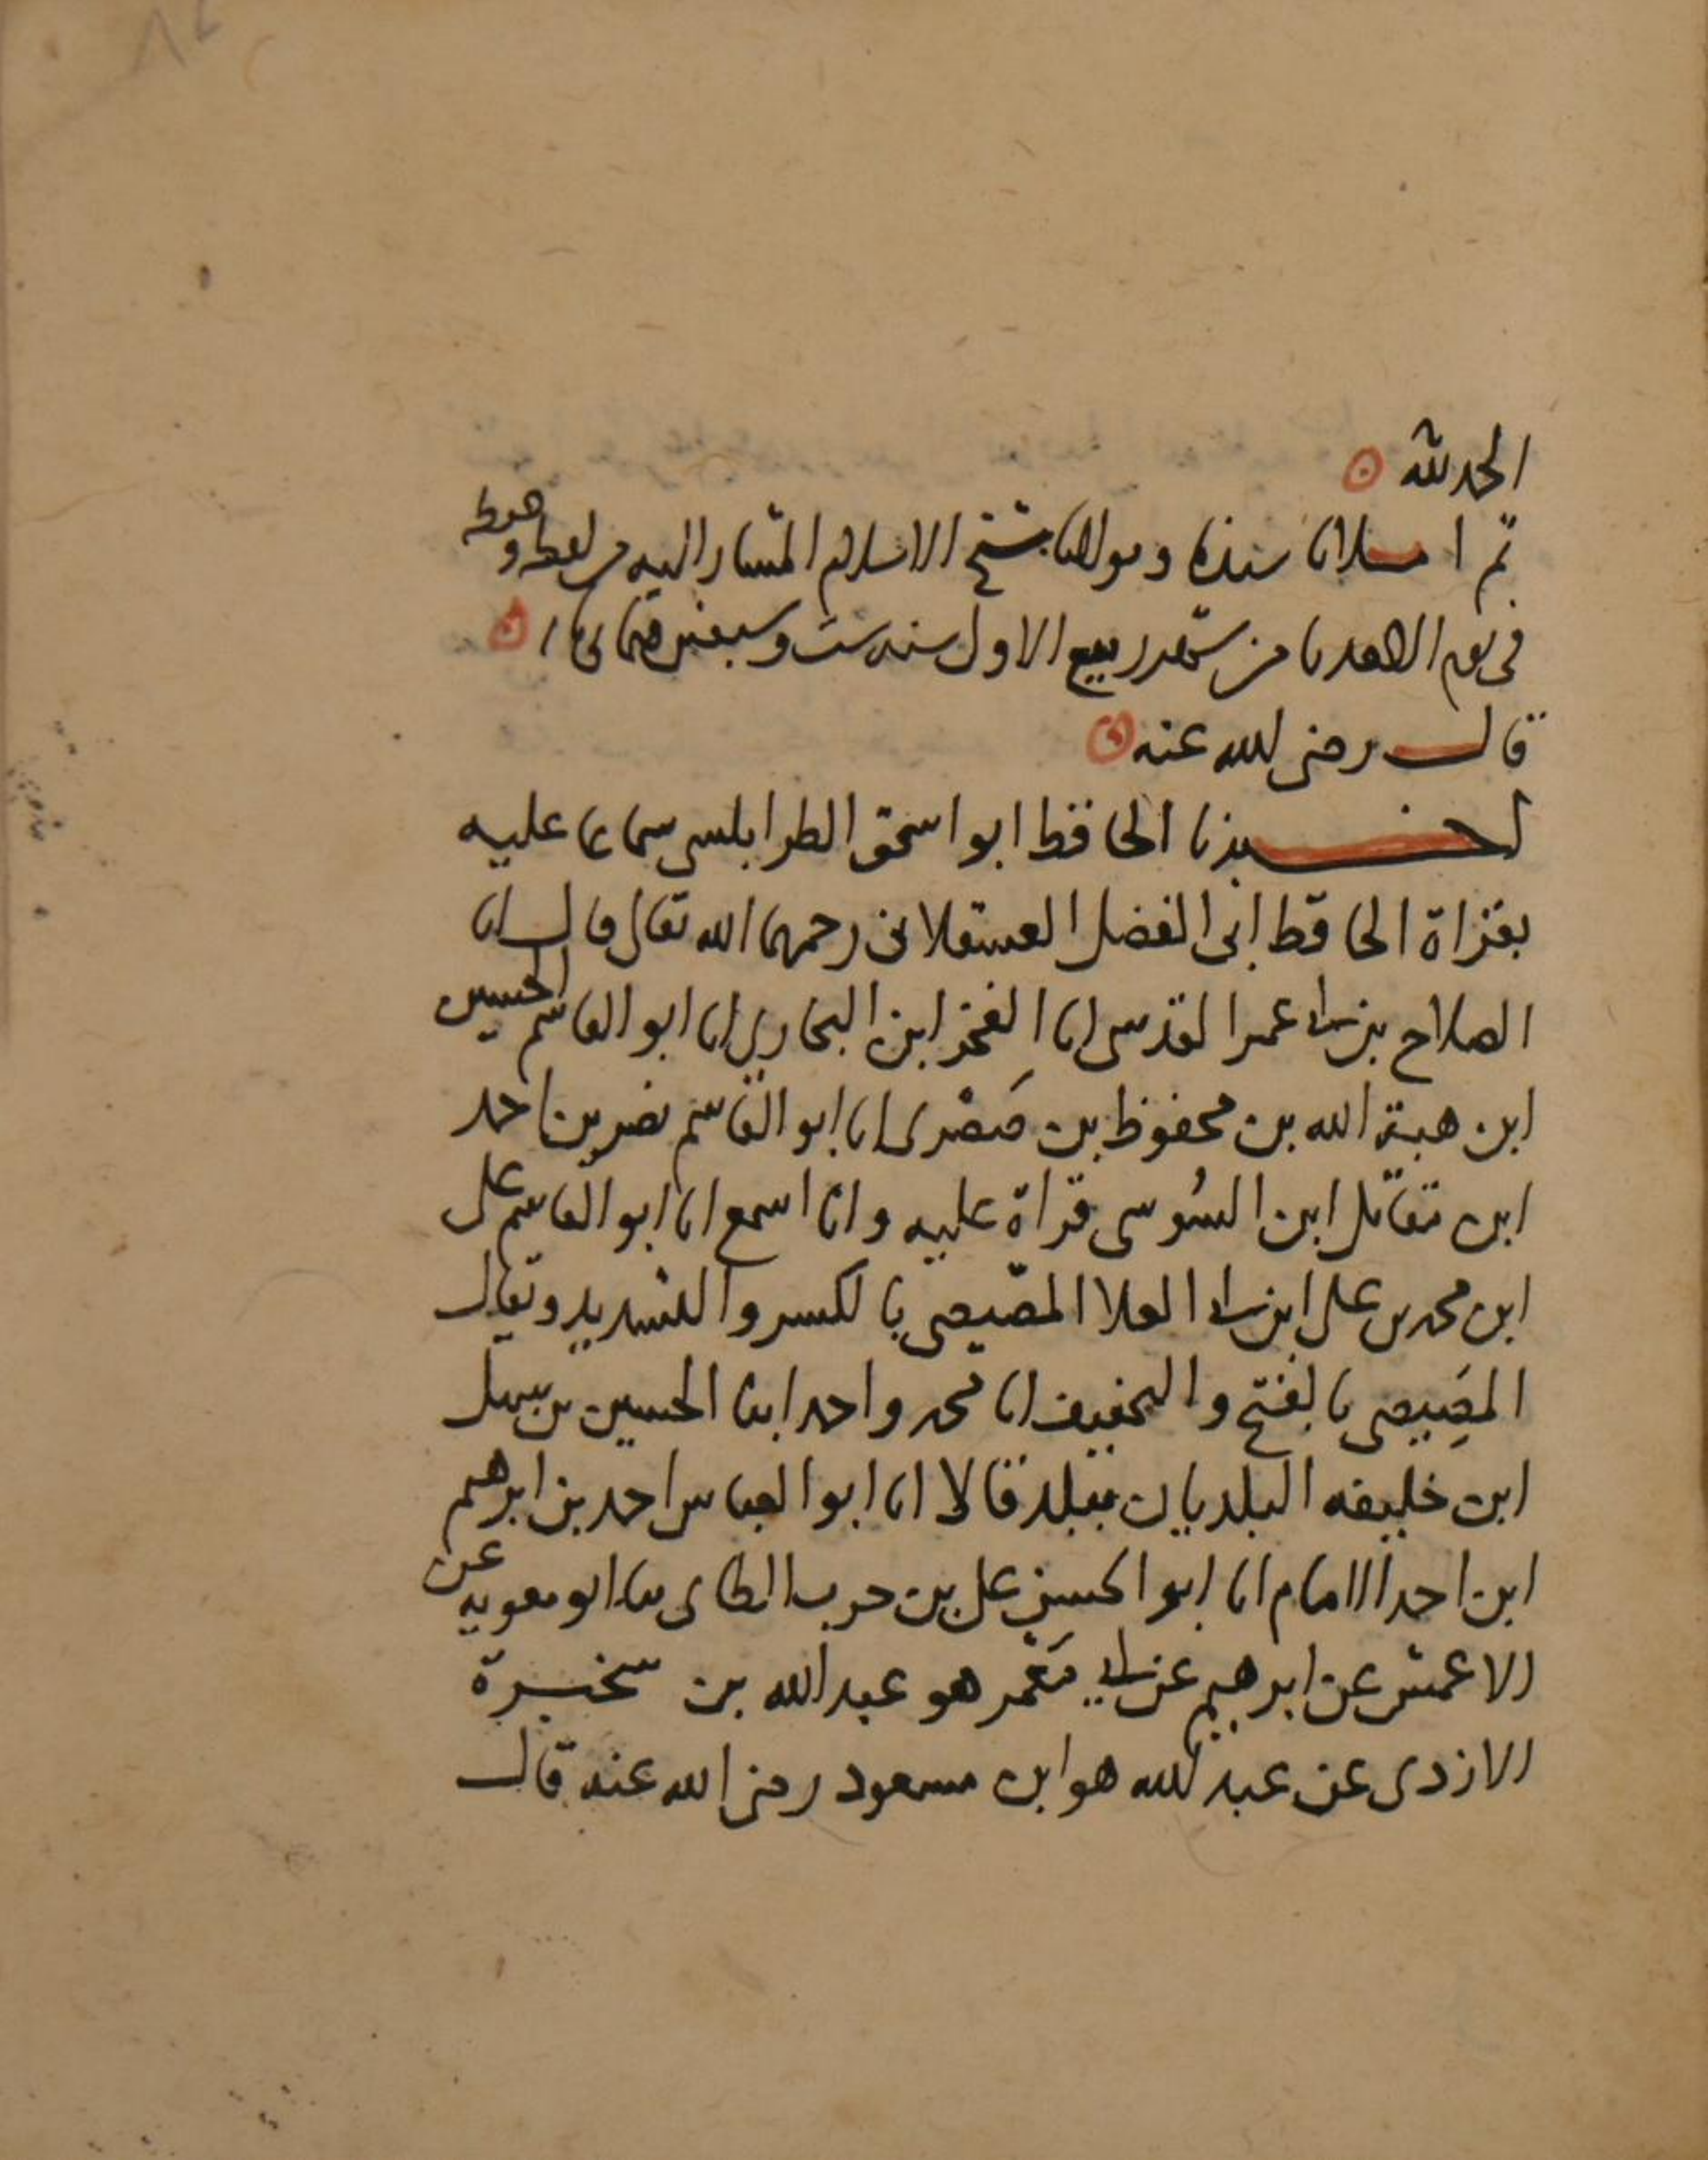 الحمد لله
ثم املانا سيدنا ومولانا شيخ الاسلام المشار اليه من لفظه وحفظه
في يوم الاحد ثامن شهر ربيع الاول سنة ست وسبعين
قال رضى الله عنه
اخبرنا الحافظ ابو اسحق الطرابلسى سماعا عليه
بقراة الحافظ ابى الفضل العسقلانى رحمهما الله تعالى قال انا
الصلاح بن ابى عمر المقدسى انا الفخر ابن البخارى انا ابو القاسم الحسين
ابن هبة الله بن محفوظ بن صَصْرى انا ابو القاسم نصر بن احمد
ابن مقاتل ابن السُوسى قراة عليه وانا اسمع انا ابو القاسم على
ابن محمد بن على ابن ابى العلا المصّيصى بالكسر والتشديد ويقال
المَصِيصى بالفتح والتخفيف انا محمد واحمد ابنا الحسين بن سهل
ابن خليفه البلديان ببلد قالا انا ابو العباس احمد بن ابرهيم
ابن احمد الامام انا ابو الحسن على بن حرب الطاى ثنا ابو معويه عن
الاعمش عن ابرهيم عن ابى مَعْمر هو عبد الله بن سخبرة
الازدى عن عبد الله هو ابن مسعود رضى الله عنه قال